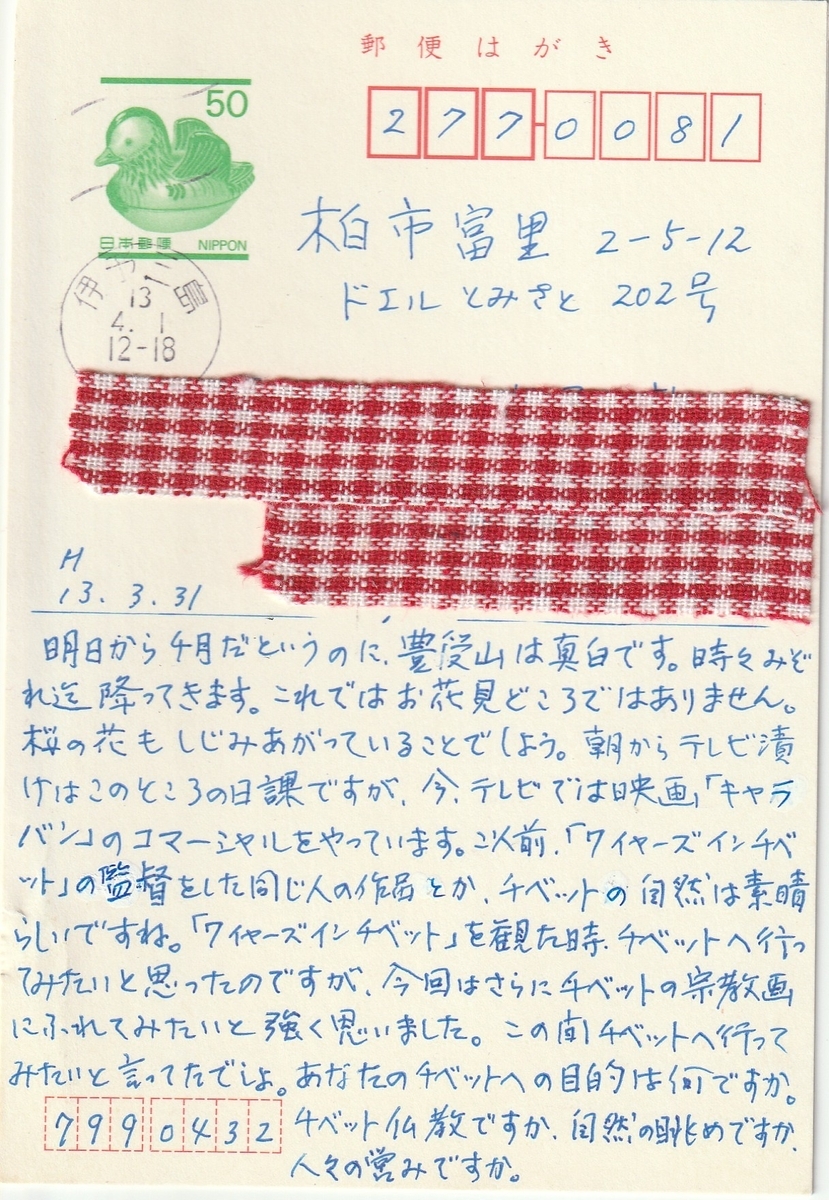 郵便はがき
50
277-0081
日本郵便 NIPPON
柏市富里 2-5-12
ドエルとみさと 202号
伊予三島
13
4. 1
12-18
H
13. 3. 31
明日から4月だというのに、豊受山は真白です。時々みぞ
れ迄降ってきます。これではお花見どころではありません。
桜の花もしじみあがっていることでしよう。朝からテレビ漬
けはこのところの日課ですが、今、テレビでは映画「キャラ
バン」のコマーシャルをやっています。以前、「ワイヤーズインチベ
ット」の監督をした同じ人の作品とか、チベットの自然は素晴
らしいですね。「ワイヤーズインチベット」を観た時、チベットへ行っ
てみたいと思ったのですが、今回はさらにチベットの宗教画
にふれてみたいと強く思いました。この間チベットへ行って
みたいと言ってたでしょ。あなたのチベットへの目的は何ですか。
チベット仏教ですか、自然の眺めですか、
人々の営みですか。
7990432